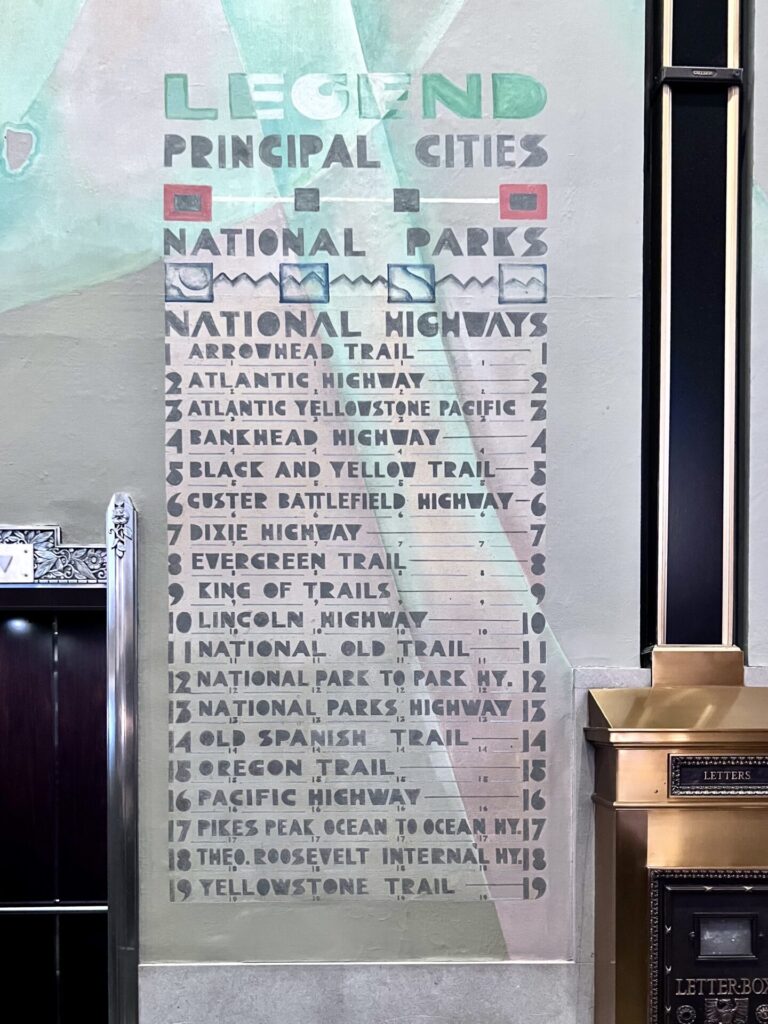 LEGEND
PRINCIPAL CITIES
NATIONAL PARKS
NATIONAL HIGHWAYS
1 ARROWHEAD TRAIL 1
2 ATLANTIC HIGHWAY 2
3 ATLANTIC YELLOWSTONE PACIFIC 3
4 BANKHEAD HIGHWAY 4
5 BLACK AND YELLOW TRAIL 5
6 CUSTER BATTLEFIELD HIGHWAY 6
7 DIXIE HIGHWAY 7
8 EVERGREEN TRAIL 8
9 KING OF TRAILS 9
10 LINCOLN HIGHWAY 10
11 NATIONAL OLD TRAIL 11
12 NATIONAL PARK TO PARK HY. 12
13 NATIONAL PARKS HIGHWAY 13
14 OLD SPANISH TRAIL 14
15 OREGON TRAIL 15
16 PACIFIC HIGHWAY 16
17 PIKES PEAK OCEAN TO OCEAN HY. 17
18 THEO. ROOSEVELT INTERNAL HY. 18
19 YELLOWSTONE TRAIL 19
LETTERS
LETTER·BOX